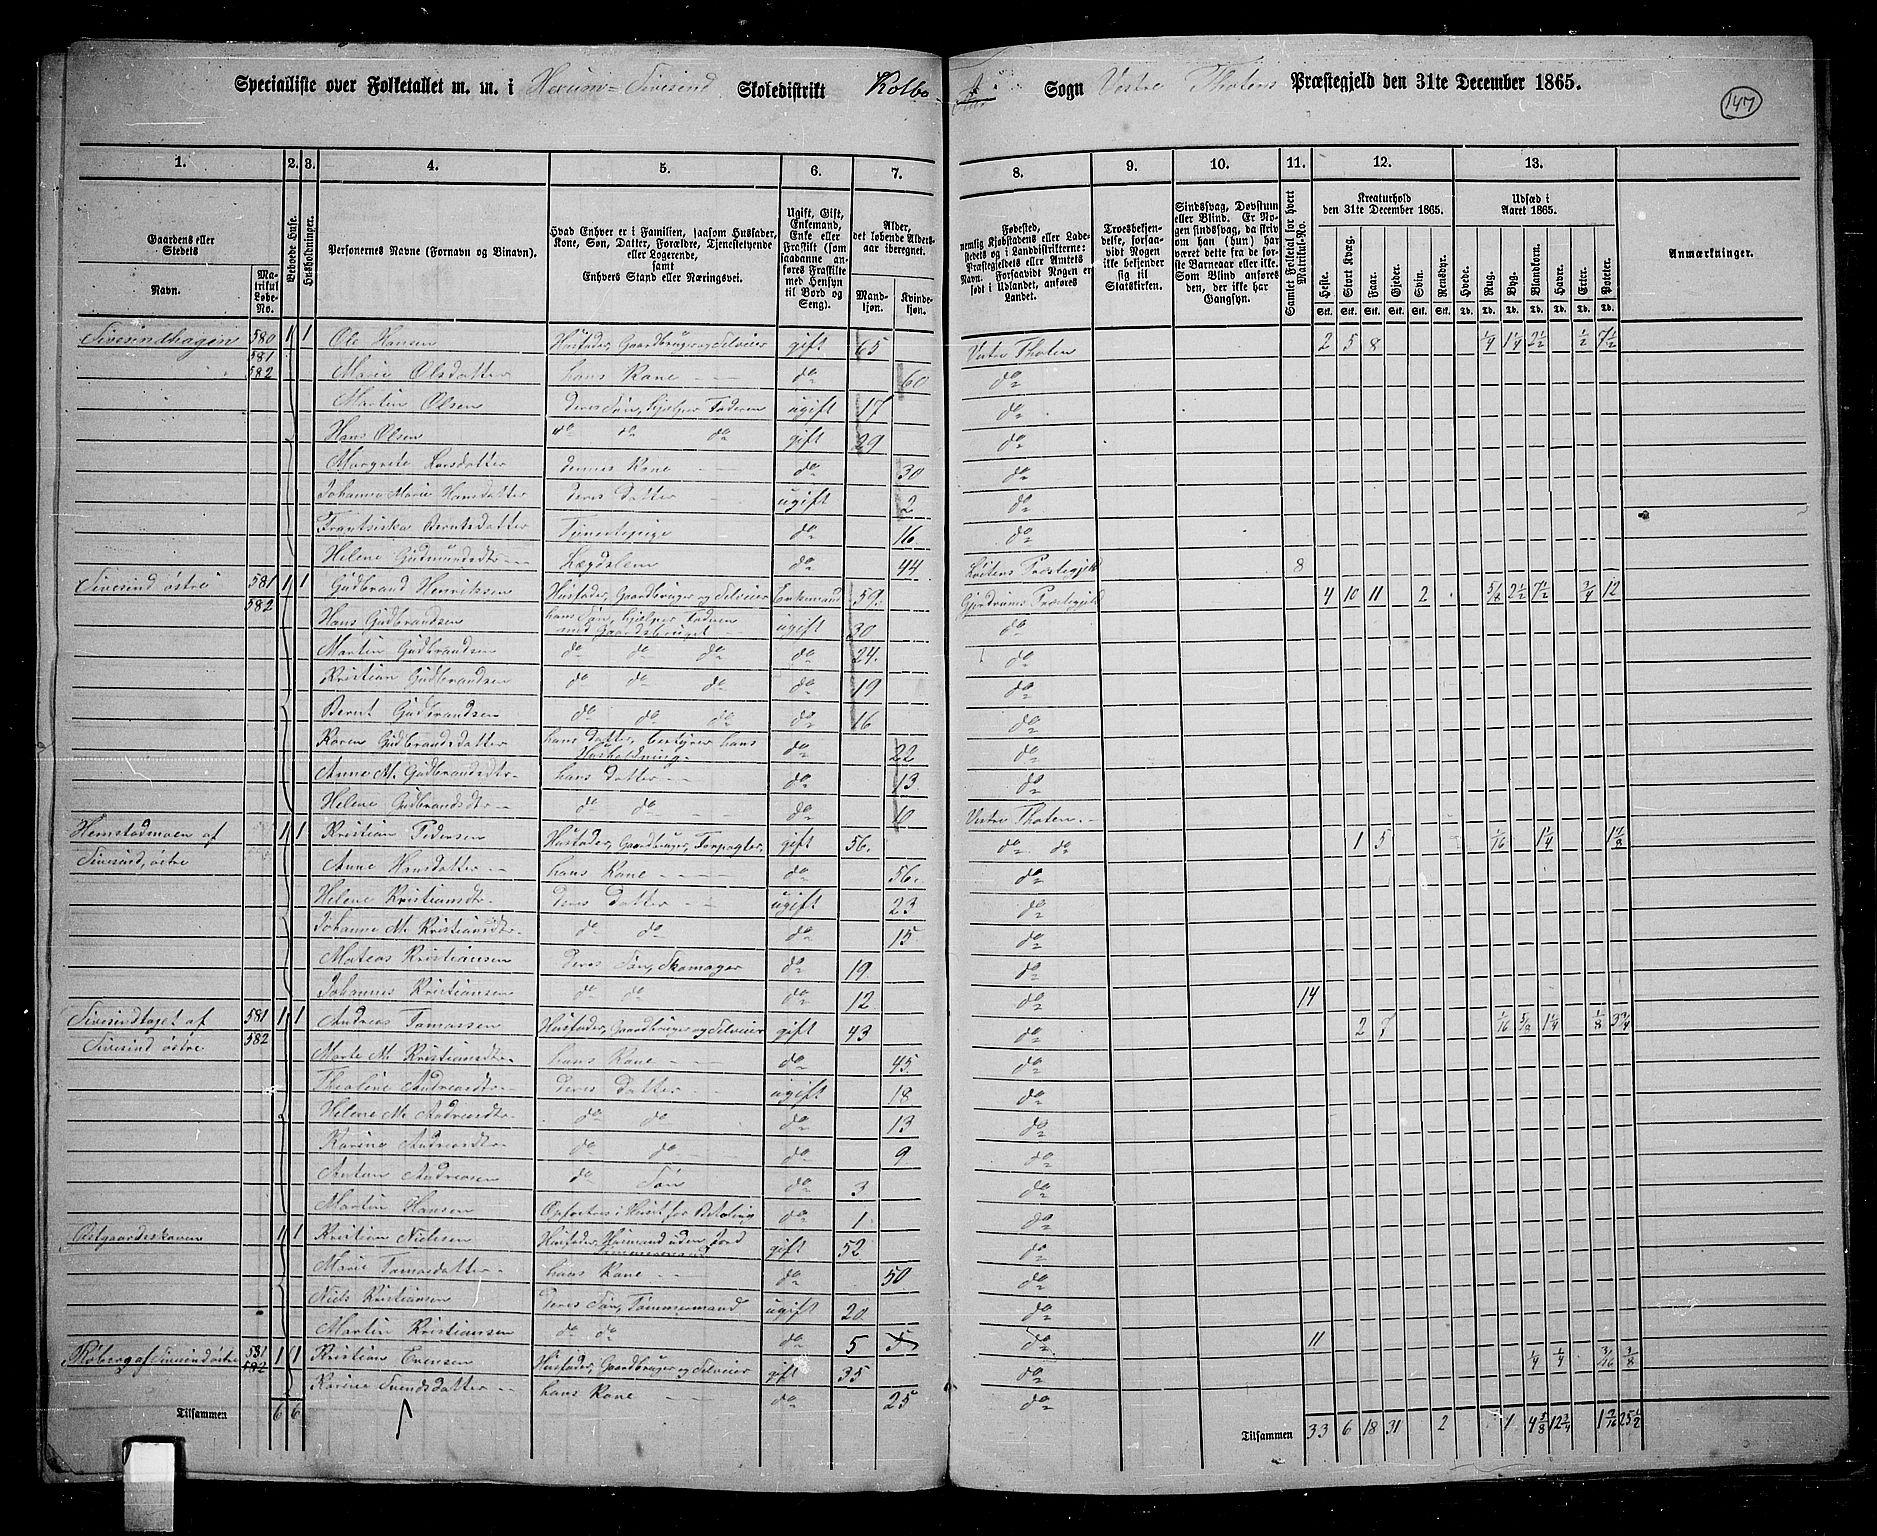 Specialliste over Folketallet m. m. i Herum-Sivesind Skoledistrikt Kolbo Sogn Vestre Thotens Præstegjeld den 31te December 1865.
147
1. 2. 3. 4. 5. 6. 7. 8. 9. 10. 11. 12. 13.
Gaardens eller Stedets Navn. Matrikul Løbe-No. Beboede Huse. Husholdninger. Personernes Navne (Fornavn og Binavn). Hvad Enhver er i Familien, saasom Husfader, Kone, Søn, Datter, Forældre, Tjenestetyende eller Logerende, samt Enhvers Stand eller Næringsvei. Ugift, Gift, Enkemand, Enke eller Fraskilt (som saadanne anføres Fraskilte med Hensyn til Bord og Seng). Alder, det løbende Aldersaar iberegnet. Mandkjøn. Kvindekjøn. Fødested, nemlig Kjøbstadens eller Ladestedets og i Landdistrikterne: Præstegjeldets eller Amtets Navn. Forsaavidt Nogen er født i Udlandet, anføres Landet. Troesbekjendelse, forsaavidt Nogen ikke bekjender sig til Statskirken. Sindssvag, Døvstum eller Blind. Er Nogen sindssvag, da skriv om han (hun) har været dette fra de første Barneaar eller ikke. Som Blind anføres den, der ikke har Gangsyn. Samlet Folketal for hvert Matrikul-No. Kreaturhold den 31te December 1865. Heste. Stort Kvæg. Faar. Gjeder. Svin. Rensdyr. Udsæd i Aaret 1865. Hvede. Rug. Byg. Blandkorn. Havre. Erter. Poteter. Anmærkninger.
Stk. Stk. Stk. Stk. Stk. Stk. Td. Td. Td. Td. Td. Td. Td.
Sivesindhagen 580 1 1 Ole Hansen Husfader, Gaardbruger og Selveier gift 65 Vestre Thoten 2 5 8 1/4 1 1/4 2 1/2 1/2 7 1/2
581
582 Marie Olsdatter hans Kone do 60 do
Martin Olsen deres Søn, hjelper Faderen ugift 17 do
Hans Olsen do do do gift 29 do
Margrete Larsdatter dennes Kone do 30 do
Johanne Marie Hansdatter deres Datter ugift 2 do
Frantsiska Berntsdatter Tjenestepige do 16 do
Helene Gudmundsdtr Lægdslem do 44 Løitens Præstegjeld 8
Sivesind østre 581 1 1 Gudbrand Henriksen Husfader, Gaardbruger og Selveier Enkemand 59 Gjerdrums Præstegjeld 4 10 11 2 5/8 2 1/2 7 1/2 3/4 12
582 Hans Gudbrandsen hans Søn, hjelper Faderen med Gaardsbruget ugift 30 do
Martin Gudbrandsen do do do do 24 do
Kristian Gudbrandsen do do do do 19 do
Bernt Gudbrandsen do do do do 16 do
Karen Gudbrandsdatter hans Datter, bestyrer hans Husholdning do 22 do
Anne M. Gudbrandsdtr hans Datter do 13 do
Helene Gudbrandsdtr do do do 10 Vestre Thoten
Hemstadmoen af 1 1 Kristian Pedersen Husfader, Gaardbruger, Forpagter gift 56 do do 1 5 1/16 1 1/4 1 7/8
Sivesind, østre Anne Hansdatter hans Kone do 56 do
Helene Kristiansdtr deres Datter ugift 23 do
Johanne M. Kristiansdtr do do do 15 do
Mateas Kristiansen deres Søn, Skomager do 19 do
Johannes Kristiansen do do do 12 do 14
Sivesindtajet af 581 1 1 Andreas Tomassen Husfader, Gaardbruger og Selveier gift 43 do 2 7 1/16 5/8 1 1/4 1/8 3 3/4
Sivesind østre 582 Marte M. Kristiansdtr hans Kone do 45 do
Theoline Andreasdtr deres Datter ugift 18 do
Helene M. Andreasdtr do do do 13 do
Karine Andreasdtr do do do 9 do
Anton Andreasen do Søn do 3 do
Martin Hansen Opfostres i Huset for Betaling do 1 do
1 1 Kristian Nielsen Husfader, Husmand uden Jord Tømmermand gift 52 do
Marie Tomasdatter hans Kone do 50 do
Niels Kristiansen deres Søn, Tømmermand ugift 20 do
Martin Kristiansen do do do 5 5 do 11
af Sivesind østre 581 1 1 Kristian Evensen Husfader, Gaardbruger og Selveier gift 35 do 1/4 1/4 3/16 3/8
582 Karine Svendsdatter hans Kone do 25 do
Tilsammen 6 6 Tilsammen 33 6 18 31 2 1 4 5/8 12 3/4 25 1/2